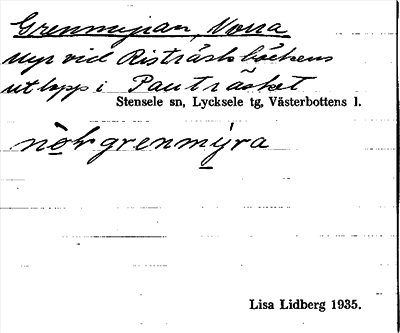 Grenmyran, Norra
Myr vid Risträskbäckens
utlopp i Pauträsket
Stensele sn, Lycksele tg, Västerbottens l.
nòrgrenmýra
Lisa Lidberg 1935.